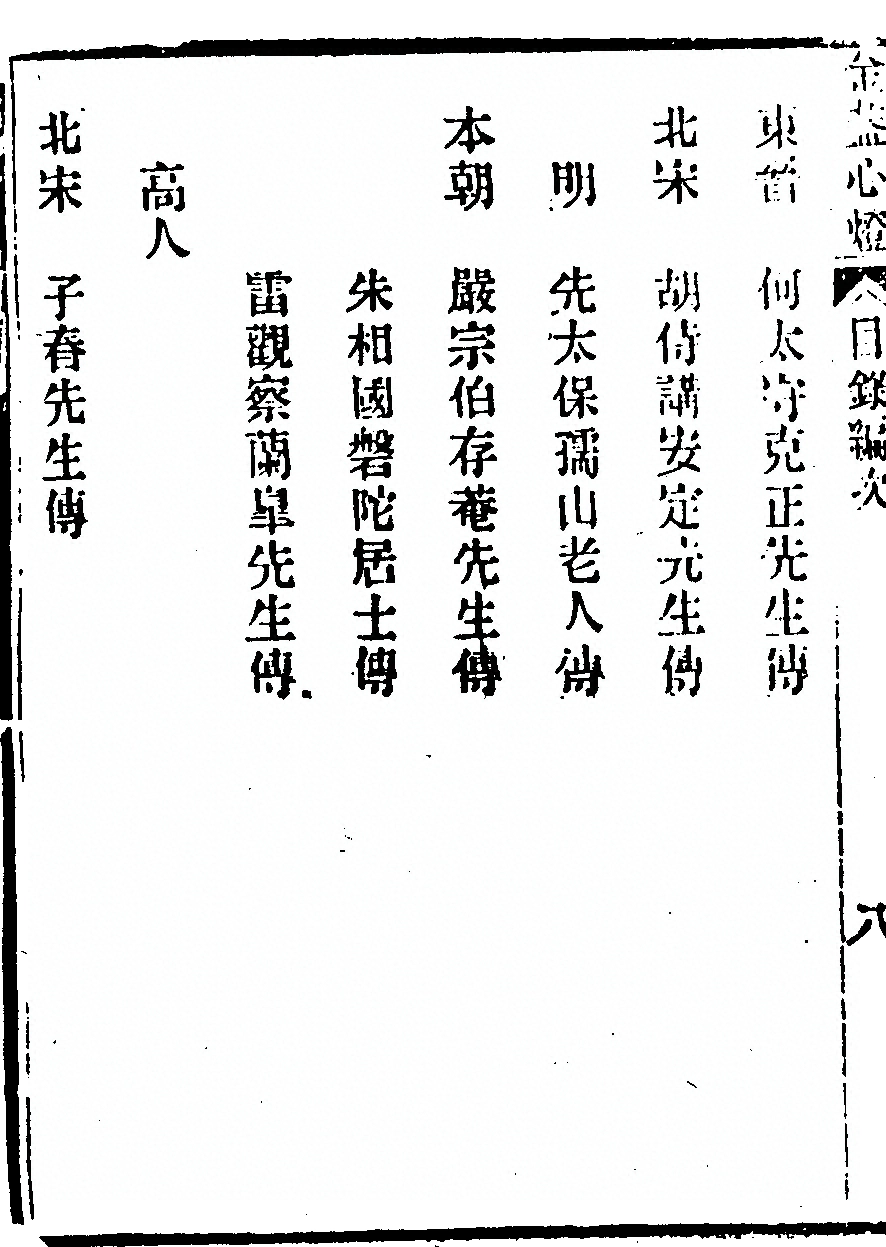 金蓋心燈 目錄編次 八
東晉 何太守克正先生傳
北宋 胡侍講安定先生傳
明 先太保孺山老人傳
本朝 嚴宗伯存菴先生傳
朱相國磐陀居士傳
雷觀察蘭皐先生傳
高人
北宋 子春先生傳